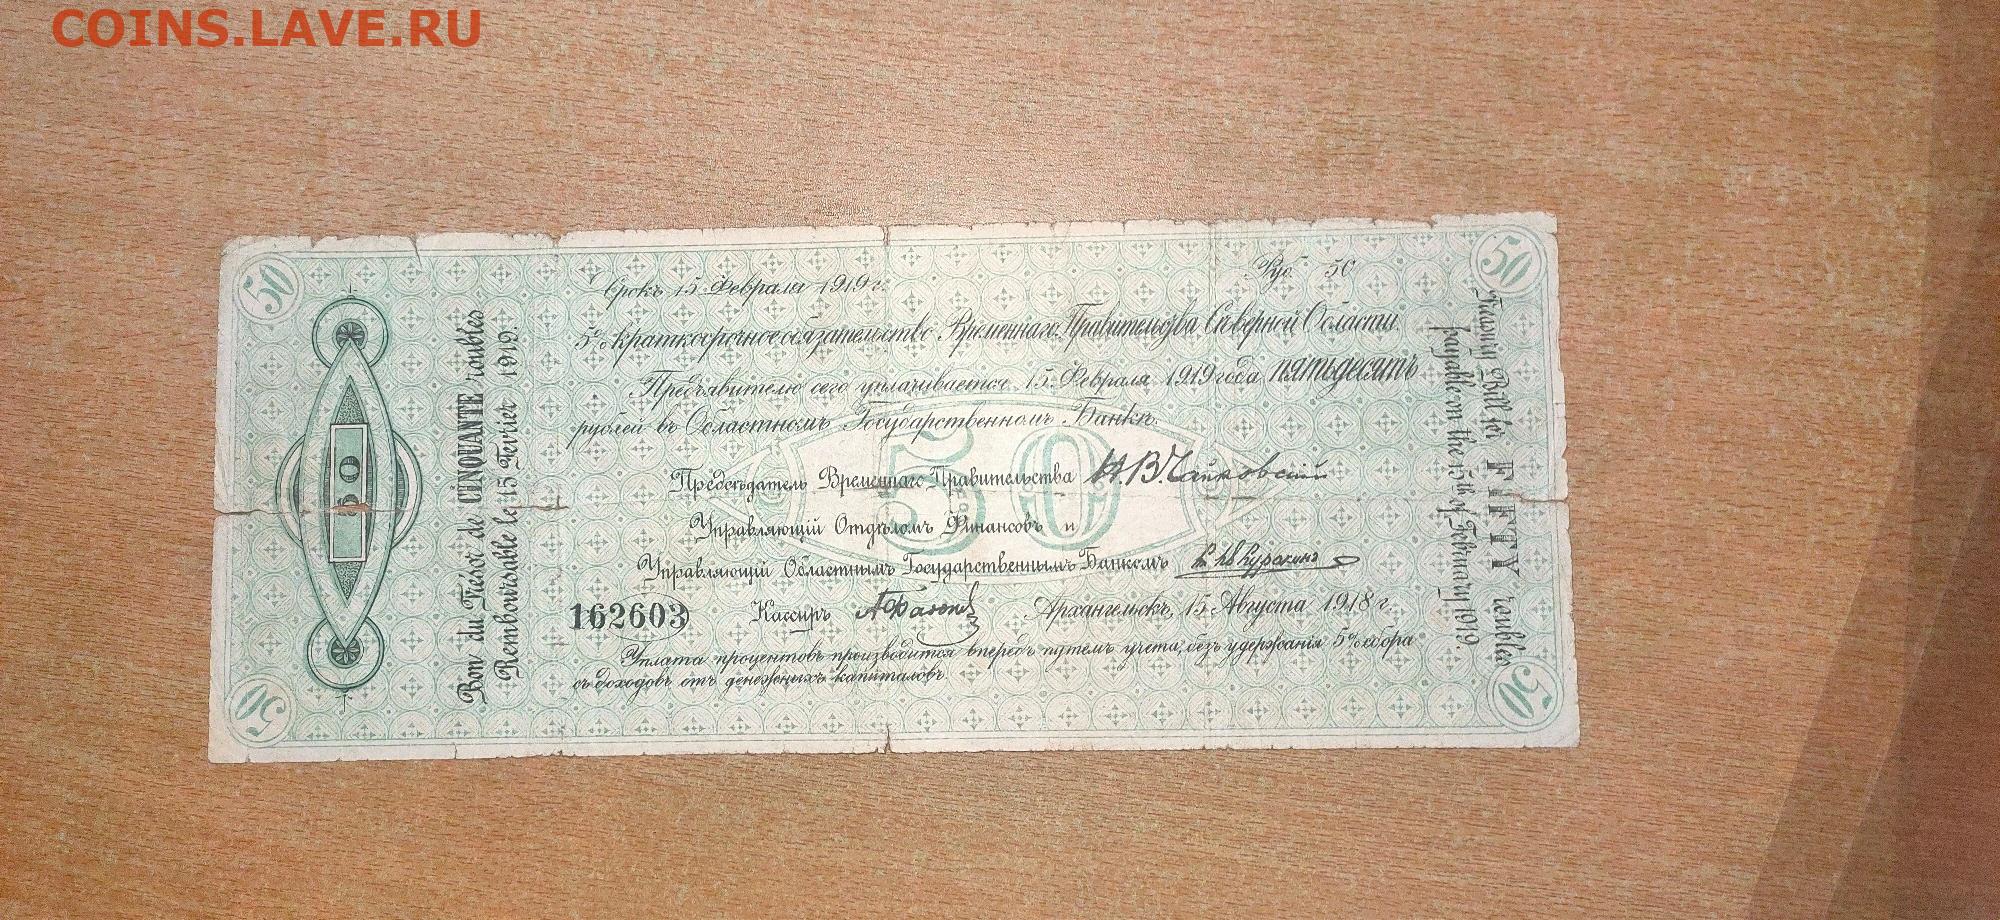 COINS.LAVE.RU
50
50
Срокъ 15 Февраля 1919 г.
Руб. 50
5% краткосрочное обязательство Временнаго Правительства Северной Области.
Предъявителю сего уплачивается 15 Февраля 1919 года пятьдесятъ
рублей въ Областномъ Государственномъ Банкѣ.
50
Предсѣдатель Временнаго Правительства Н.В.Чайковскій
Управляющій Отдѣломъ Финансовъ и
Управляющій Областнымъ Государственнымъ Банкомъ
162603 Кассиръ Архангельскъ, 15 Августа 1918 г.
Уплата процентовъ производится впередъ путемъ учета, безъ удержанія 5% сбора
съ доходовъ отъ денежныхъ капиталовъ.
50
Bon du Trésor de CINQUANTE roubles
Remboursable le 15 Fevrier 1919.
Treasury Bill for FIFTY roubles
payable on the 15th of February 1919.
50
50